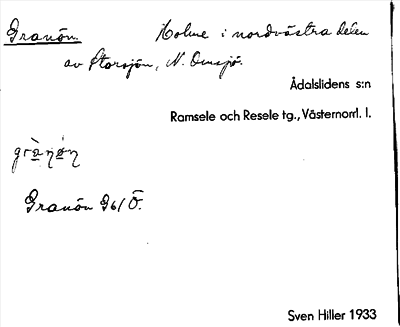 Granön. Holme i nordvästra delen
av Storsjön, N. Omsjö.
Ådalslidens s:n
Ramsele och Resele tg., Västernorrl. l.
Granön 96/Ö.
Sven Hiller 1933